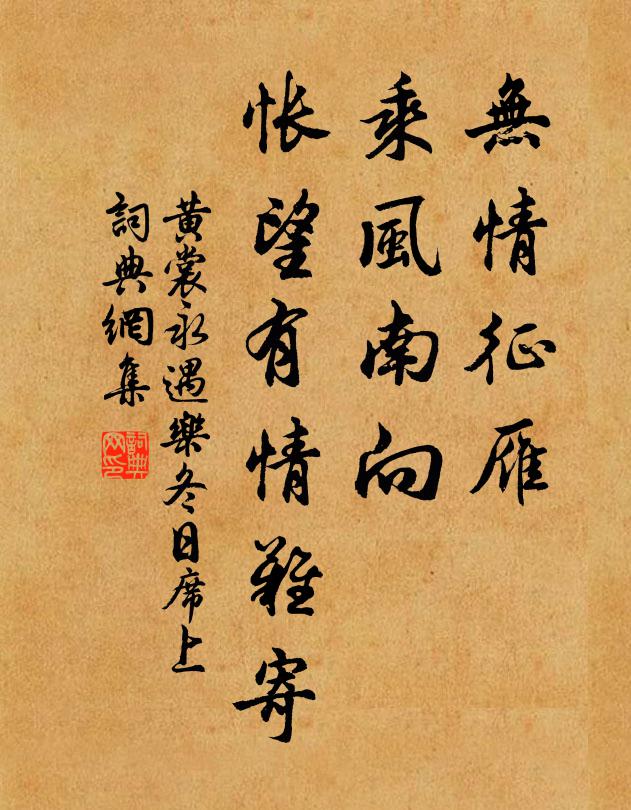 無情征雁
乘風南向
悵望有情難寄
黄裳永遇樂冬日席上
詞典網集
詞典
网印